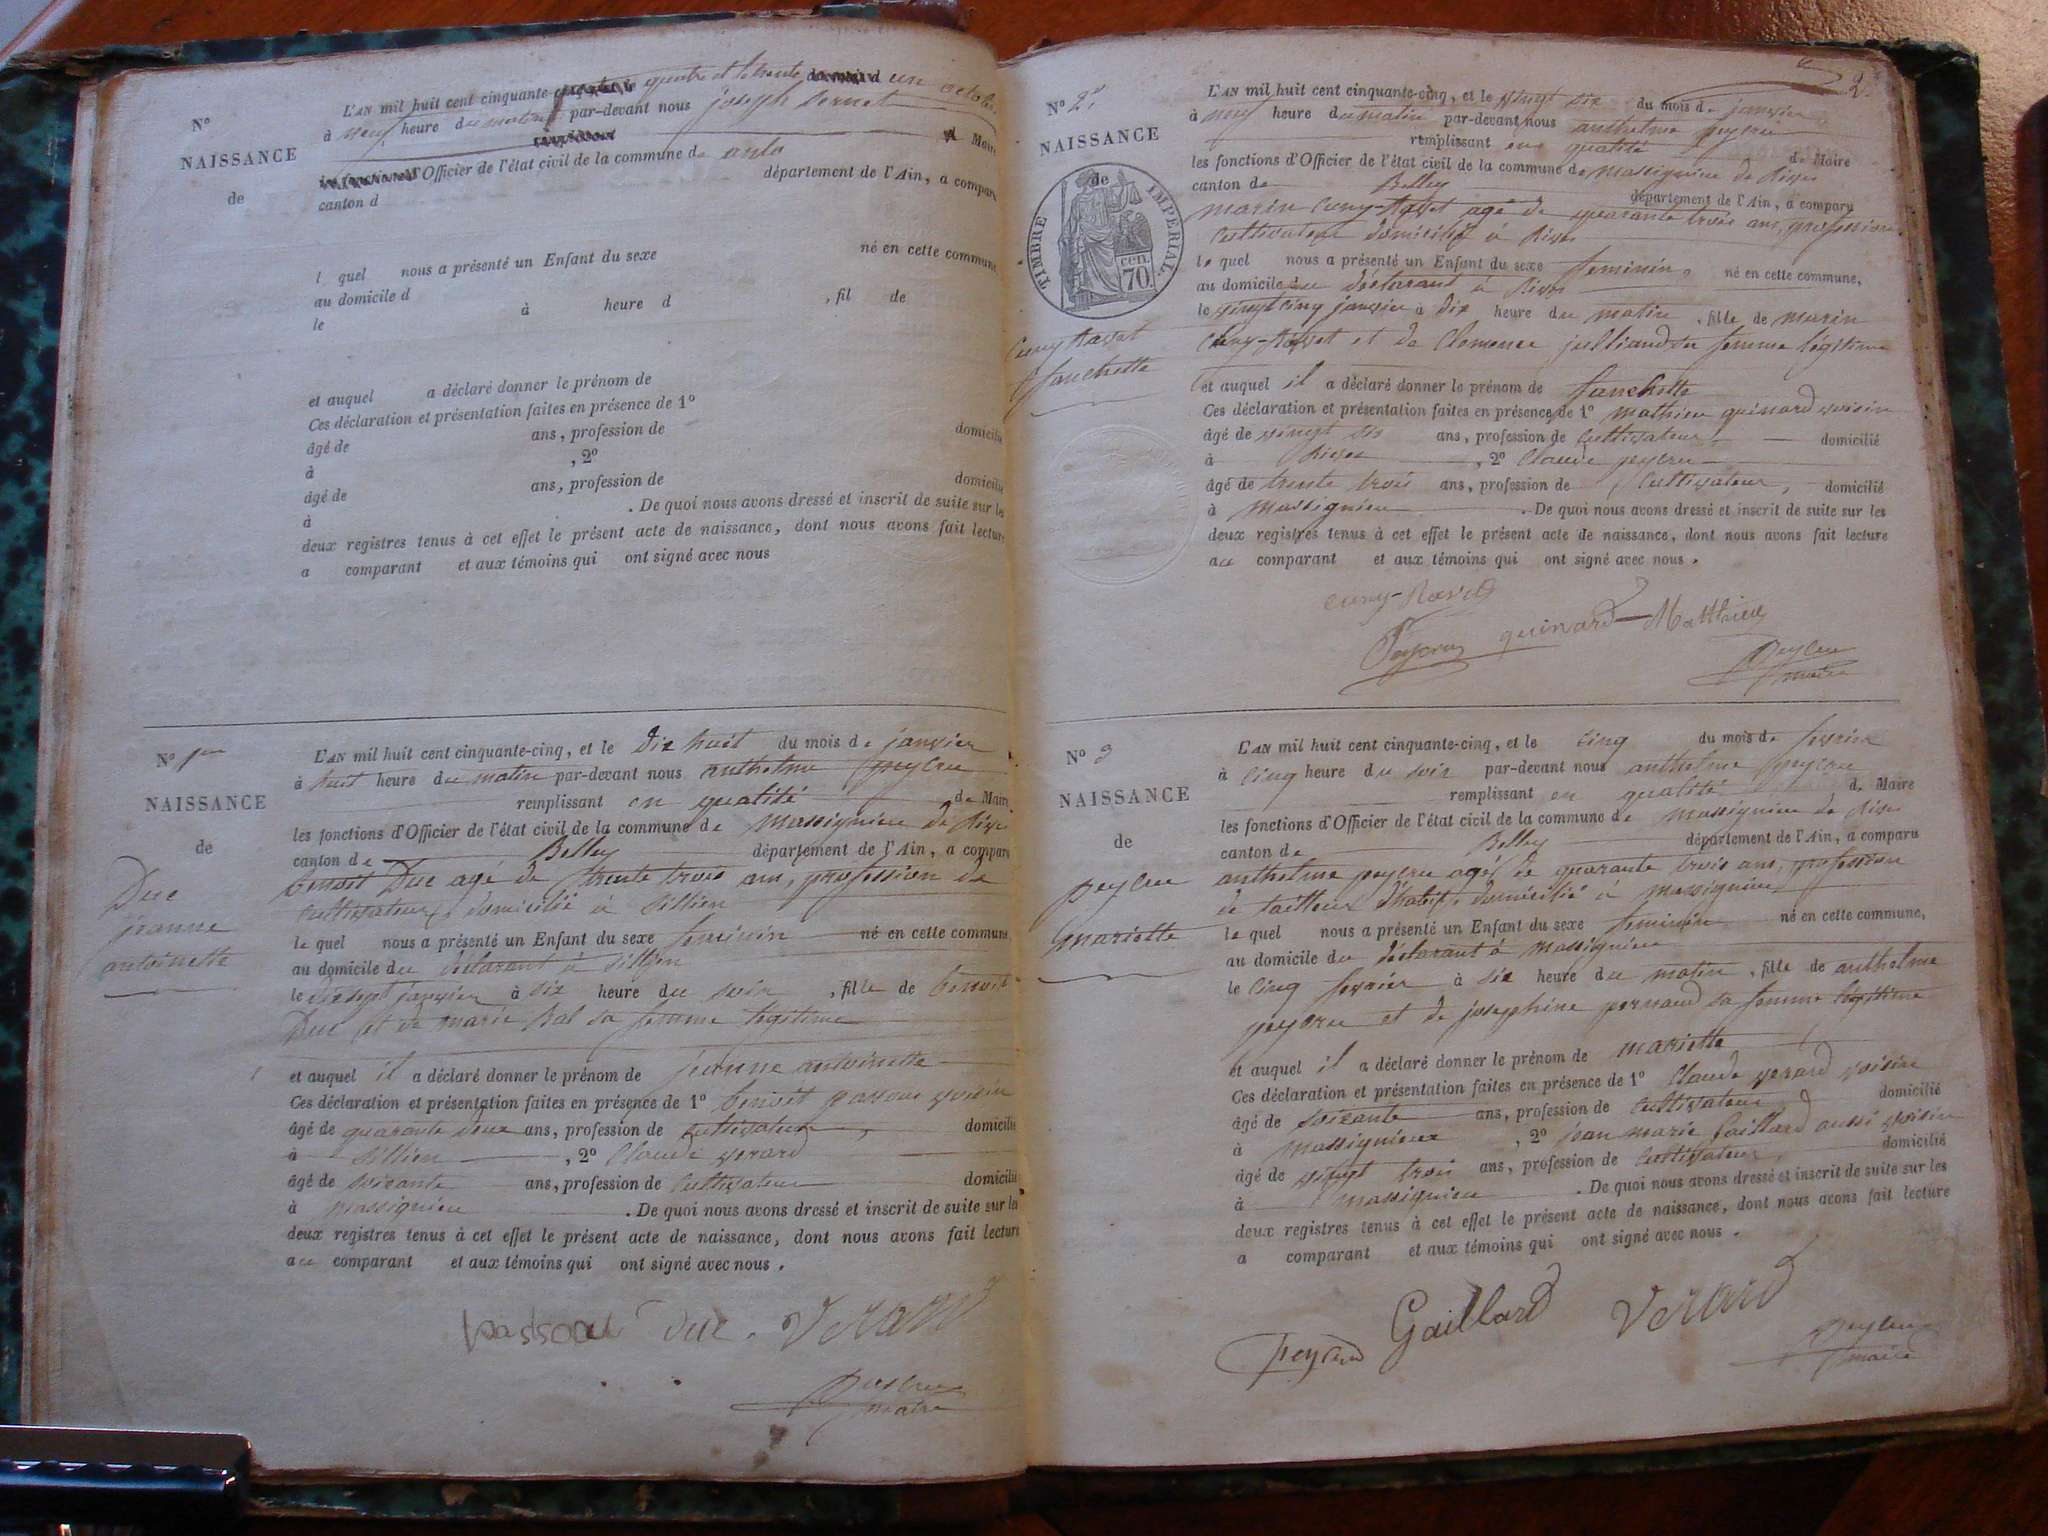 N°
NAISSANCE
de
L'AN mil huit cent cinquante- quatre et le trente un octobre
à neuf heure du matin par-devant nous joseph d Maire
d'Officier de l'état civil de la commune de
canton d département de l'Ain, a comparu
l quel nous a présenté un Enfant du sexe né en cette commune,
au domicile d
le à heure d , fil de
et auquel a déclaré donner le prénom de
Ces déclaration et présentation faites en présence de 1°
âgé de ans, profession de domicilié
à , 2°
âgé de ans, profession de domicilié
à . De quoi nous avons dressé et inscrit de suite sur les
deux registres tenus à cet effet le présent acte de naissance, dont nous avons fait lecture
a comparant et aux témoins qui ont signé avec nous
N° 1er
NAISSANCE
de
Duc
jeanne
antoinette
L'AN mil huit cent cinquante-cinq, et le Dix huit du mois de janvier
à huit heure du matin par-devant nous anthelme peycru
remplissant en qualité de Maire
les fonctions d'Officier de l'état civil de la commune de massignieu de Rives
canton de Belley département de l'Ain, a comparu
benoit Duc agé de trente trois ans, profession de
cultivateur, domicilié à sillien
le quel nous a présenté un Enfant du sexe feminin né en cette commune,
au domicile du déclarant à sillien
le Dix sept janvier à six heure du soir , fille de benoit
Duc et de marie Bal sa femme legitime
et auquel il a déclaré donner le prénom de jeanne antoinette
Ces déclaration et présentation faites en présence de 1° benoit voisin
âgé de quarante deux ans, profession de cultivateur, domicilié
à sillien , 2° Claude verard
âgé de soixante ans, profession de cultivateur domicilié
à massignieu . De quoi nous avons dressé et inscrit de suite sur les
deux registres tenus à cet effet le présent acte de naissance, dont nous avons fait lecture
au comparant et aux témoins qui ont signé avec nous .
Duc . Verard
peycru
maire
2
N° 2
NAISSANCE
de
TIMBRE IMPERIAL.
70 cen.
Cuny Ravet
fanchette
L'AN mil huit cent cinquante-cinq, et le vingt six du mois de janvier
à neuf heure du matin par-devant nous anthelme peycru
remplissant en qualité de Maire
les fonctions d'Officier de l'état civil de la commune de massignieu de Rives
canton de Belley département de l'Ain, a comparu
marin Cuny-Ravet agé de quarante trois ans, profession
cultivateur domicilié à Rives
le quel nous a présenté un Enfant du sexe feminin, né en cette commune,
au domicile du déclarant à Rives
le vingt cinq janvier à dix heure du matin , fille de marin
Cuny-Ravet et de Clemence julliand sa femme légitime
et auquel il a déclaré donner le prénom de fanchette
Ces déclaration et présentation faites en présence de 1° mathieu guinard voisin
âgé de vingt six ans, profession de cultivateur, domicilié
à Rives , 2° Claude peycru
âgé de trente trois ans, profession de cultivateur, domicilié
à massignieu . De quoi nous avons dressé et inscrit de suite sur les
deux registres tenus à cet effet le présent acte de naissance, dont nous avons fait lecture
au comparant et aux témoins qui ont signé avec nous .
cuny-Ravet
Peycru guinard Matthieu
peycru
maire
N° 3
NAISSANCE
de
peycru
mariette
L'AN mil huit cent cinquante-cinq, et le cinq du mois de fevrier
à cinq heure du soir par-devant nous anthelme peycru
remplissant en qualité de Maire
les fonctions d'Officier de l'état civil de la commune de massignieu de Rives
canton de Belley département de l'Ain, a comparu
anthelme peycru agé de quarante trois ans, profession
de tailleur d'habit, domicilié à massignieu
le quel nous a présenté un Enfant du sexe feminin né en cette commune,
au domicile du déclarant à massignieu
le cinq fevrier à six heure du matin , fille de anthelme
peycru et de josephine pernaud sa femme légitime
et auquel il a déclaré donner le prénom de mariette
Ces déclaration et présentation faites en présence de 1° Claude verard voisin
âgé de soixante ans, profession de cultivateur domicilié
à massignieu , 2° jean marie gaillard aussi voisin
âgé de vingt trois ans, profession de cultivateur, domicilié
à massignieu . De quoi nous avons dressé et inscrit de suite sur les
deux registres tenus à cet effet le présent acte de naissance, dont nous avons fait lecture
a comparant et aux témoins qui ont signé avec nous .
peycru Gaillard Verard
peycru
maire